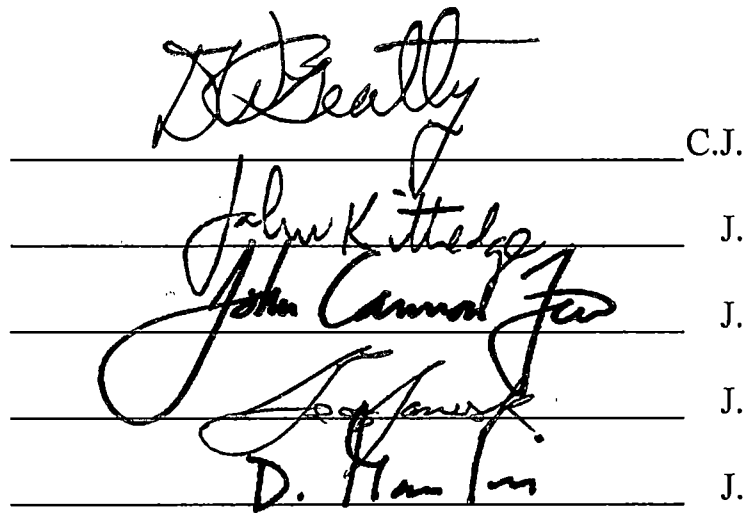 DWBeatty C.J.
John Kittredge J.
John Cannon Few J.
J.
D. J.